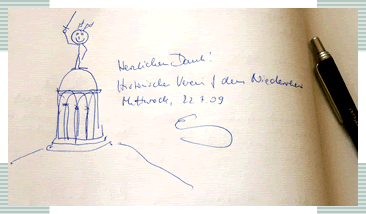 Herzlichen Dank!
Historischer Verein f. dem Niederrhein
Mittwoch, 22.7.09